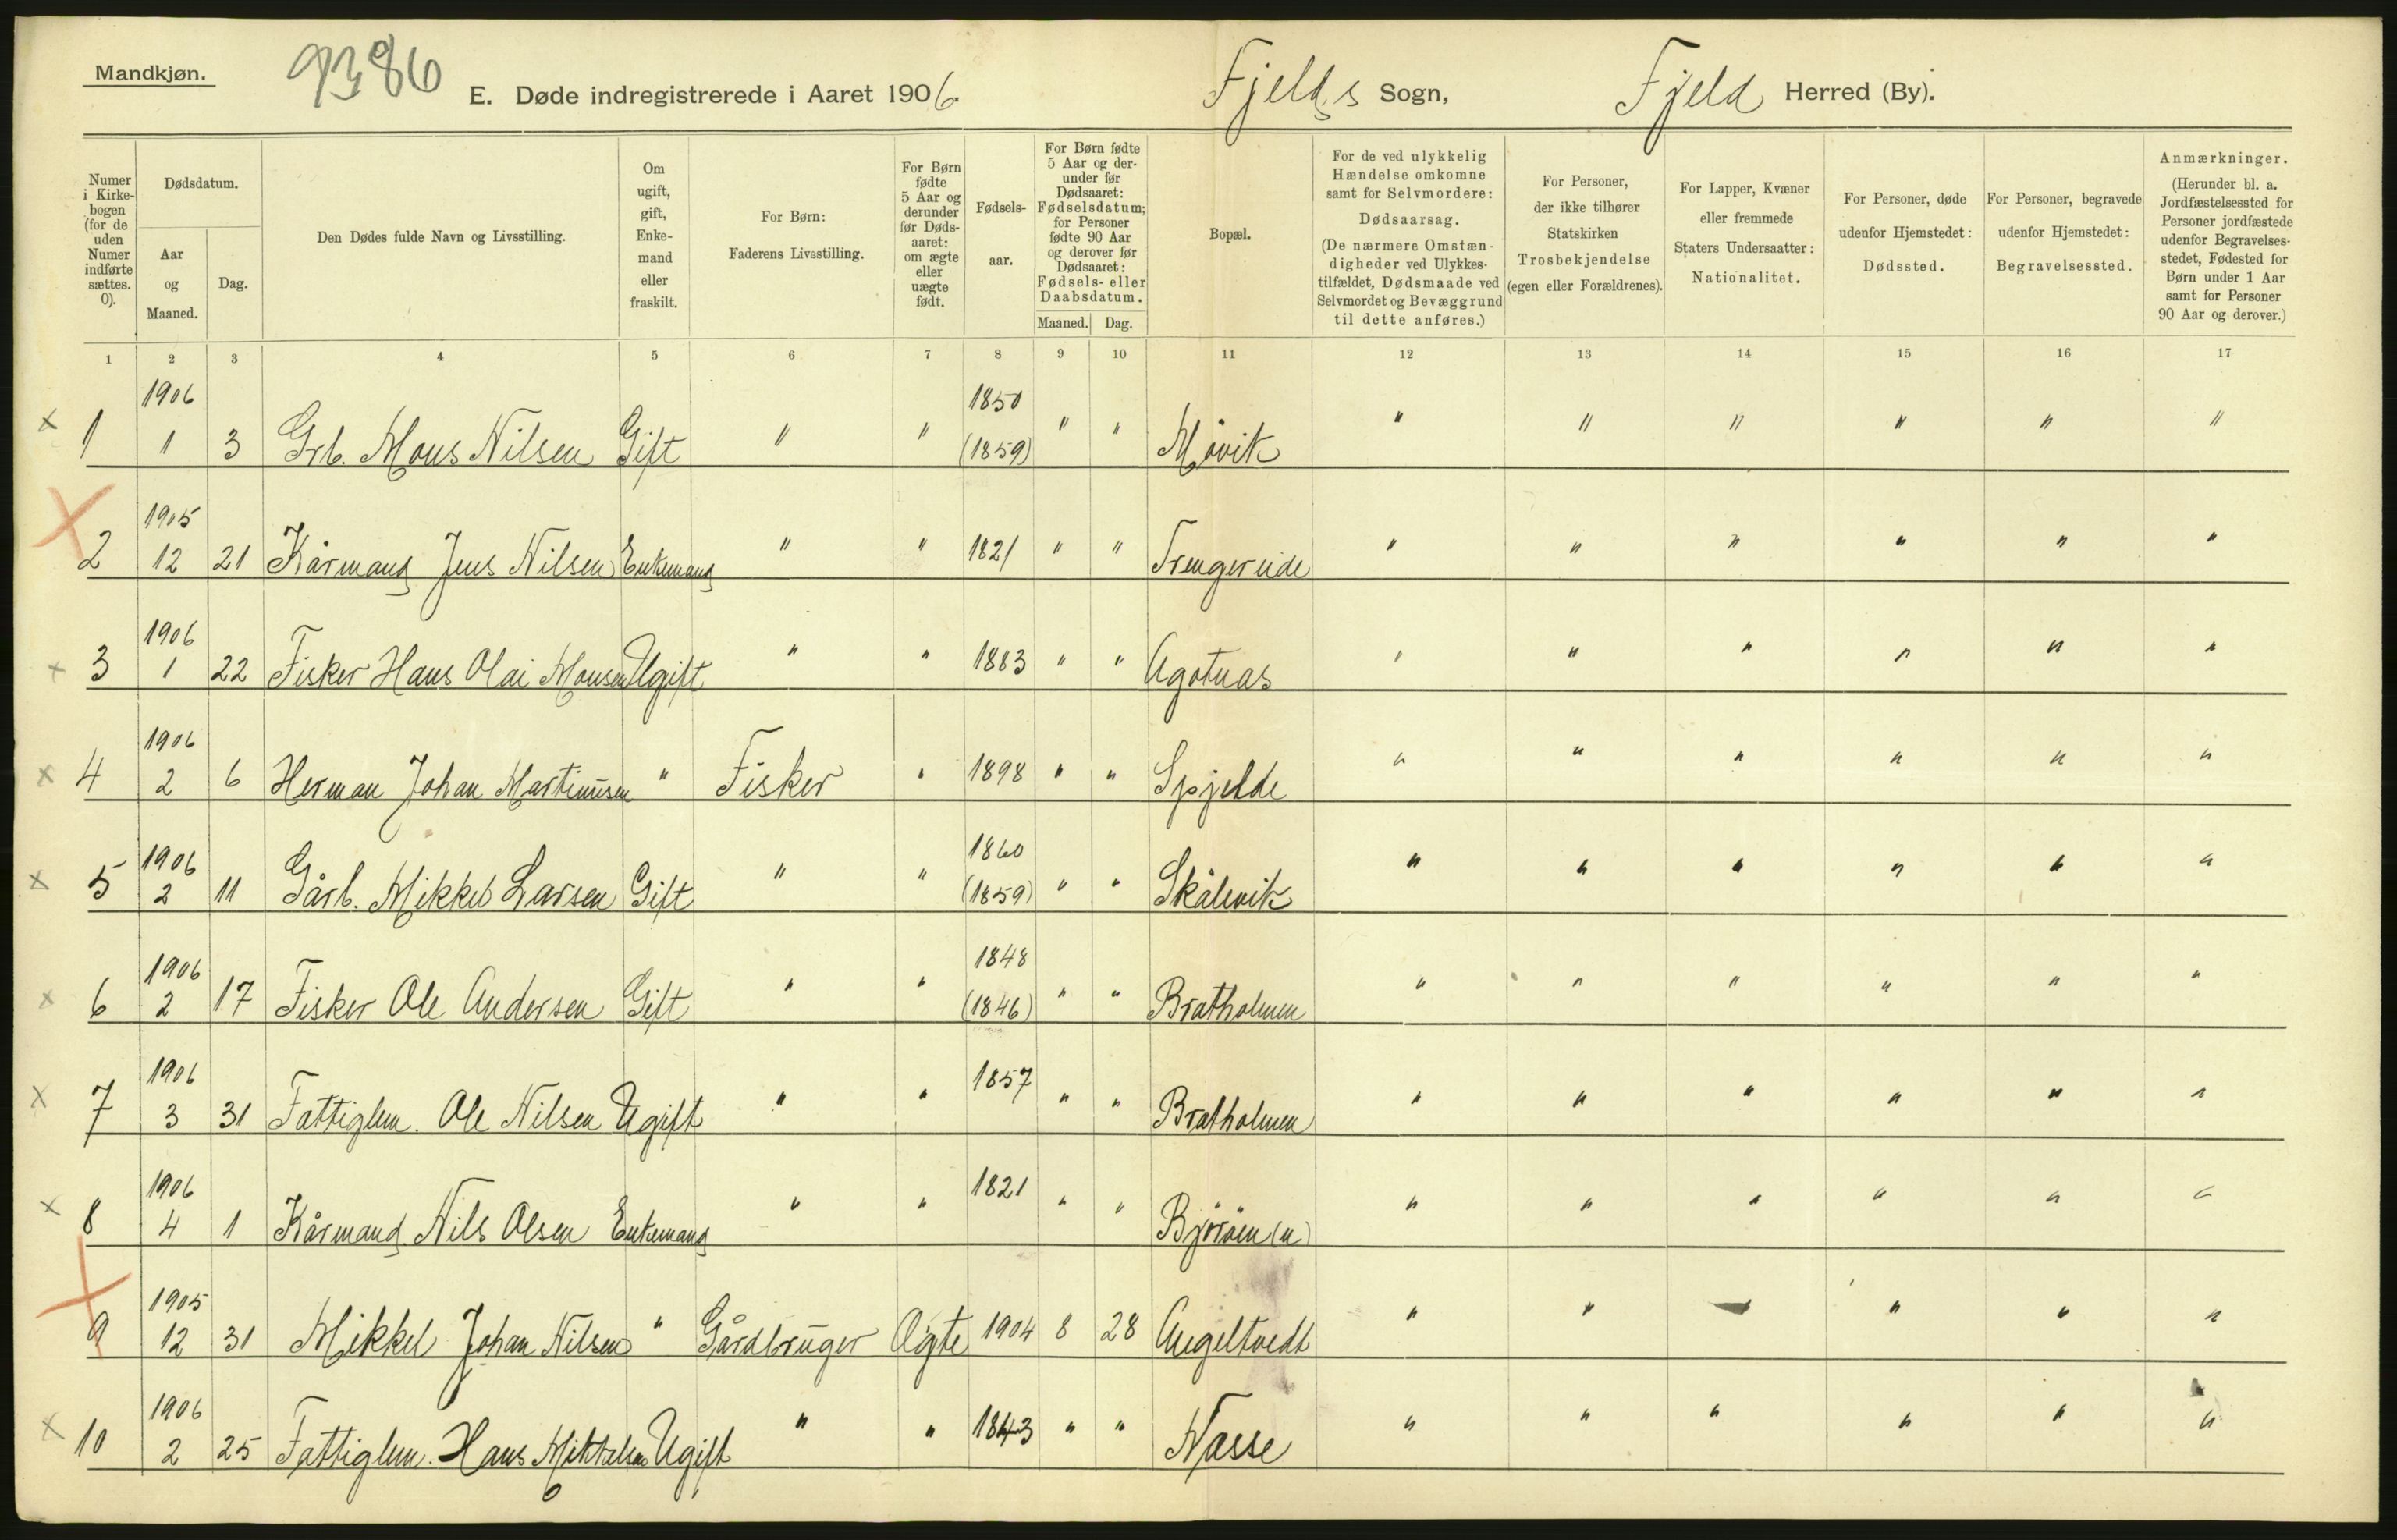 Mandkjøn.
9386
E. Døde indregistrerede i Aaret 1906.
Fjelds Sogn, Fjeld Herred (By).
Numer i Kirke-bogen (for de uden Numer indførte sættes. 0).
Dødsdatum.
Aar og Maaned.
Dag.
Den Dødes fulde Navn og Livsstilling.
Om ugift, gift, Enke-mand eller fraskilt.
For Børn: Faderens Livsstilling.
For Børn fødte 5 Aar og derunder før Døds-aaret: om ægte eller uægte født.
Fødsels-aar.
For Børn fødte 5 Aar og der-under før Dødsaaret: Fødselsdatum; for Personer fødte 90 Aar og derover før Dødsaaret: Fødsels- eller Daabsdatum.
Maaned. Dag.
Bopæl.
For de ved ulykkelig Hændelse omkomne samt for Selvmordere: Dødsaarsag. (De nærmere Omstæn-digheder ved Ulykkes-tilfældet, Dødsmaade ved Selvmordet og Bevæggrund til dette anføres.)
For Personer, der ikke tilhører Statskirken Trosbekjendelse (egen eller Forældrenes).
For Lapper, Kvæner eller fremmede Staters Undersaatter: Nationalitet.
For Personer, døde udenfor Hjemstedet: Dødssted.
For Personer, begravede udenfor Hjemstedet: Begravelsessted.
Anmærkninger. (Herunder bl. a. Jordfæstelsessted for Personer jordfæstede udenfor Begravelses-stedet, Fødested for Børn under 1 Aar samt for Personer 90 Aar og derover.)
1 2 3 4 5 6 7 8 9 10 11 12 13 14 15 16 17
1906 1850
× 1 1 3 Grb. Mons Nilsen Gift " " (1859) " " Møvik " " " " " "
1905
× 2 12 21 Kårmand Jens Nilsen Enkemand " " 1821 " " Trengereide " " " " " "
1906
× 3 1 22 Fisker Hans Olai Monsen Ugift " " 1883 " " Agotnas " " " " " "
1906
× 4 2 6 Herman Johan Martinusen " Fisker " 1898 " " Spjelde " " " " " "
1906 1860
× 5 2 11 Gårb. Mikkel Larsen Gift " " (1859) " " Skålevik " " " " " "
1906 1848
× 6 2 17 Fisker Ole Andersen Gift " " (1846) " " Bratholmen " " " " " "
1906 1857
× 7 3 31 Fattiglem. Ole Nilsen Ugift " " " " Bratholmen " " " " " "
1906 1821
× 8 4 1 Kårmand Nils Olsen Enkemand " " " " Björöen (n) " " " " " "
1905
× 9 12 31 Mikkel Johan Nilsen " Gårdbruger Ægte 1904 8 28 Angeltvedt " " " " "
1906
× 10 2 25 Fattiglem. Hans Mikkelsen Ugift " " 1843 " " Næsse " " " " " "